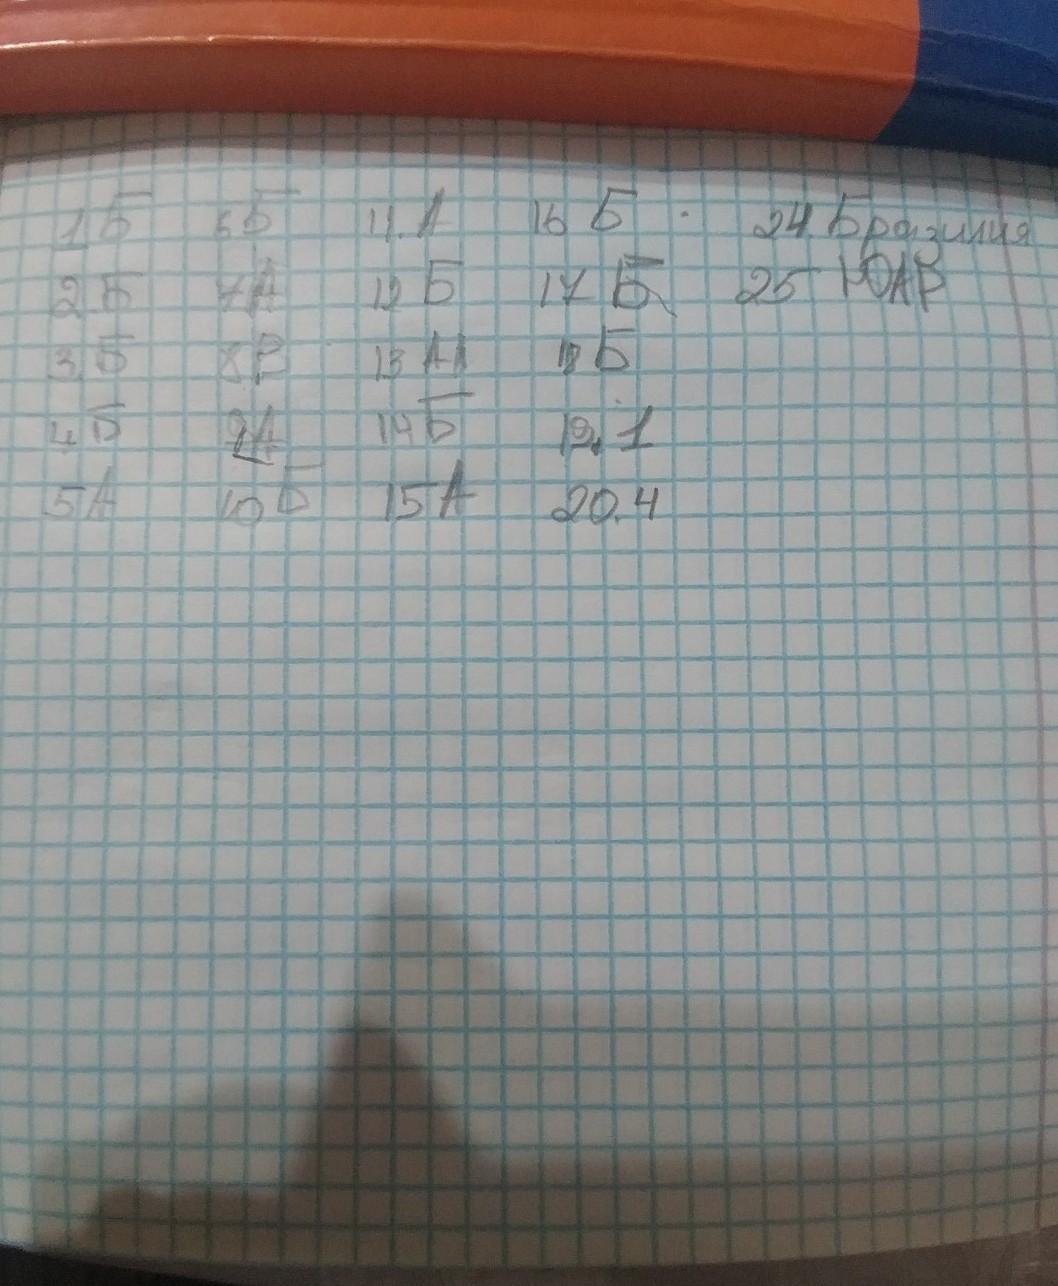 1 Б 6 Б 11. А 16 Б 24. Бразилия
2 Б 7 А 12 Б 17 Б 25 ЮАР
3 Б 8 13 А 18 Б
4 Б 9 А 14 Б 19. 1
5 А 10 Б 15 А 20. 4